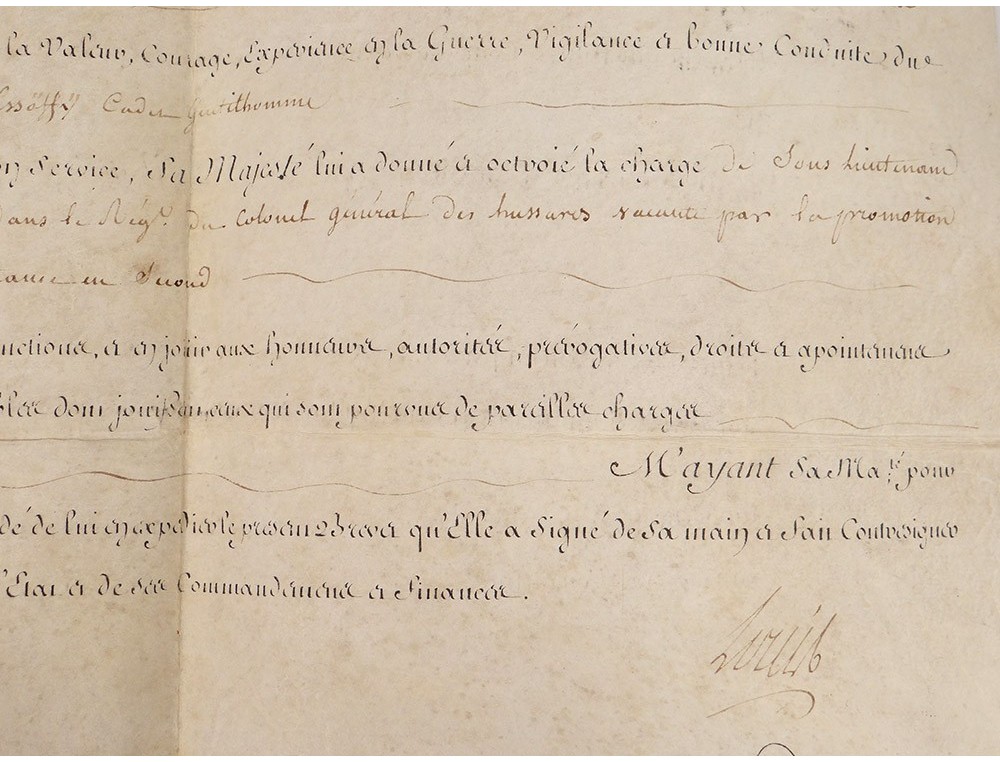 la Valeur, Courage, Expérience en la Guerre, Vigilance et bonne Conduite du
Cadet Gentilhomme
Service, Sa Majesté lui a donné et octroié la charge de Sous Lieutenant
dans le Régt. du Colonel général des hussares vacante par la promotion
en Second
et en jouir aux honneurs, autorités, prérogatives, droits et apointemens
dont jouissent ceux qui sont pourvus de pareilles charges
M'ayant Sa Maté. pour
dé de lui en expédier le présent Brevet qu'Elle a Signé de Sa main et fait Contresigner
d'Etat et de ses Commandemens et Finances.
Louis